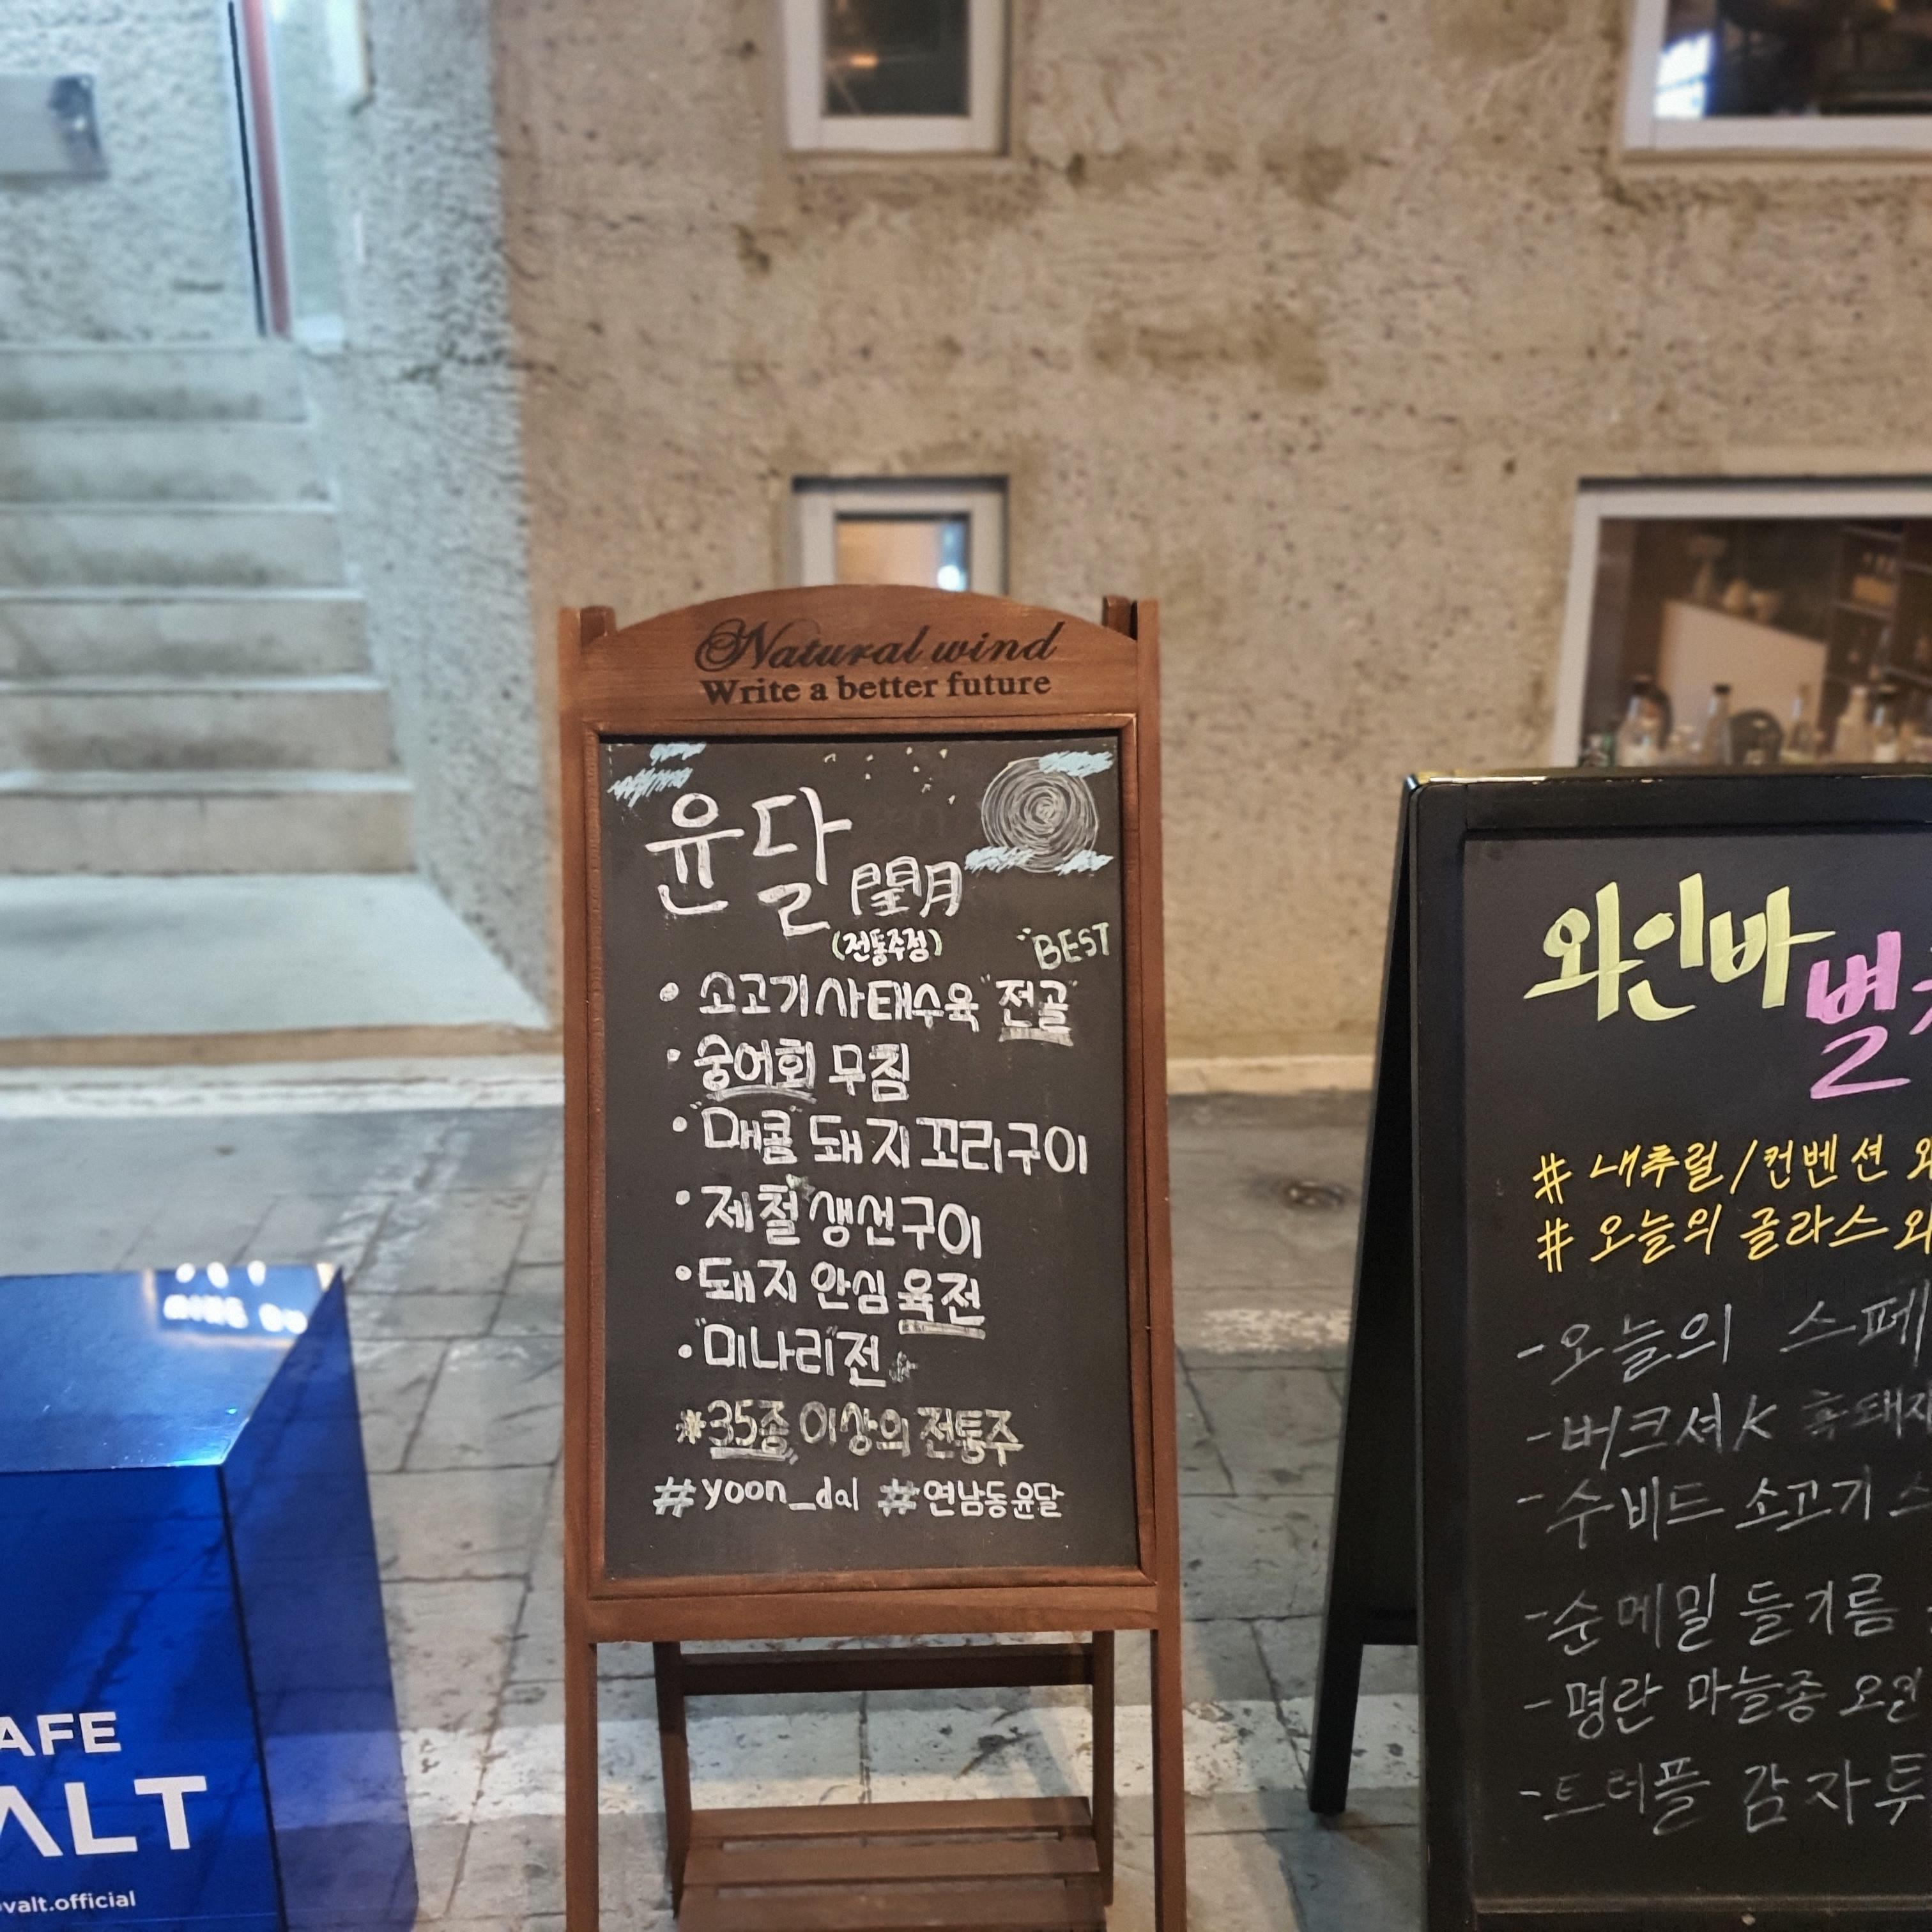 Natural wind
Write a better future
윤달 閏月
(전통주점)
"BEST
• 소고기사태수육 "전골"
• 숭어회 무침
• "매콤" 돼지꼬리구이
• 제철 생선구이
• 돼지 안심 육전
• "미나리"전
*35종 이상의 전통주
#yoon_dal #연남동윤달
와인바
# 내추럴/컨벤션
# 오늘의 글라스
-오늘의 스페
-버크셔K 흑돼지
-수비드 소고기
-순메밀 들기름
-명란 마늘종
-트러플 감자
AFE
ALT
valt.official